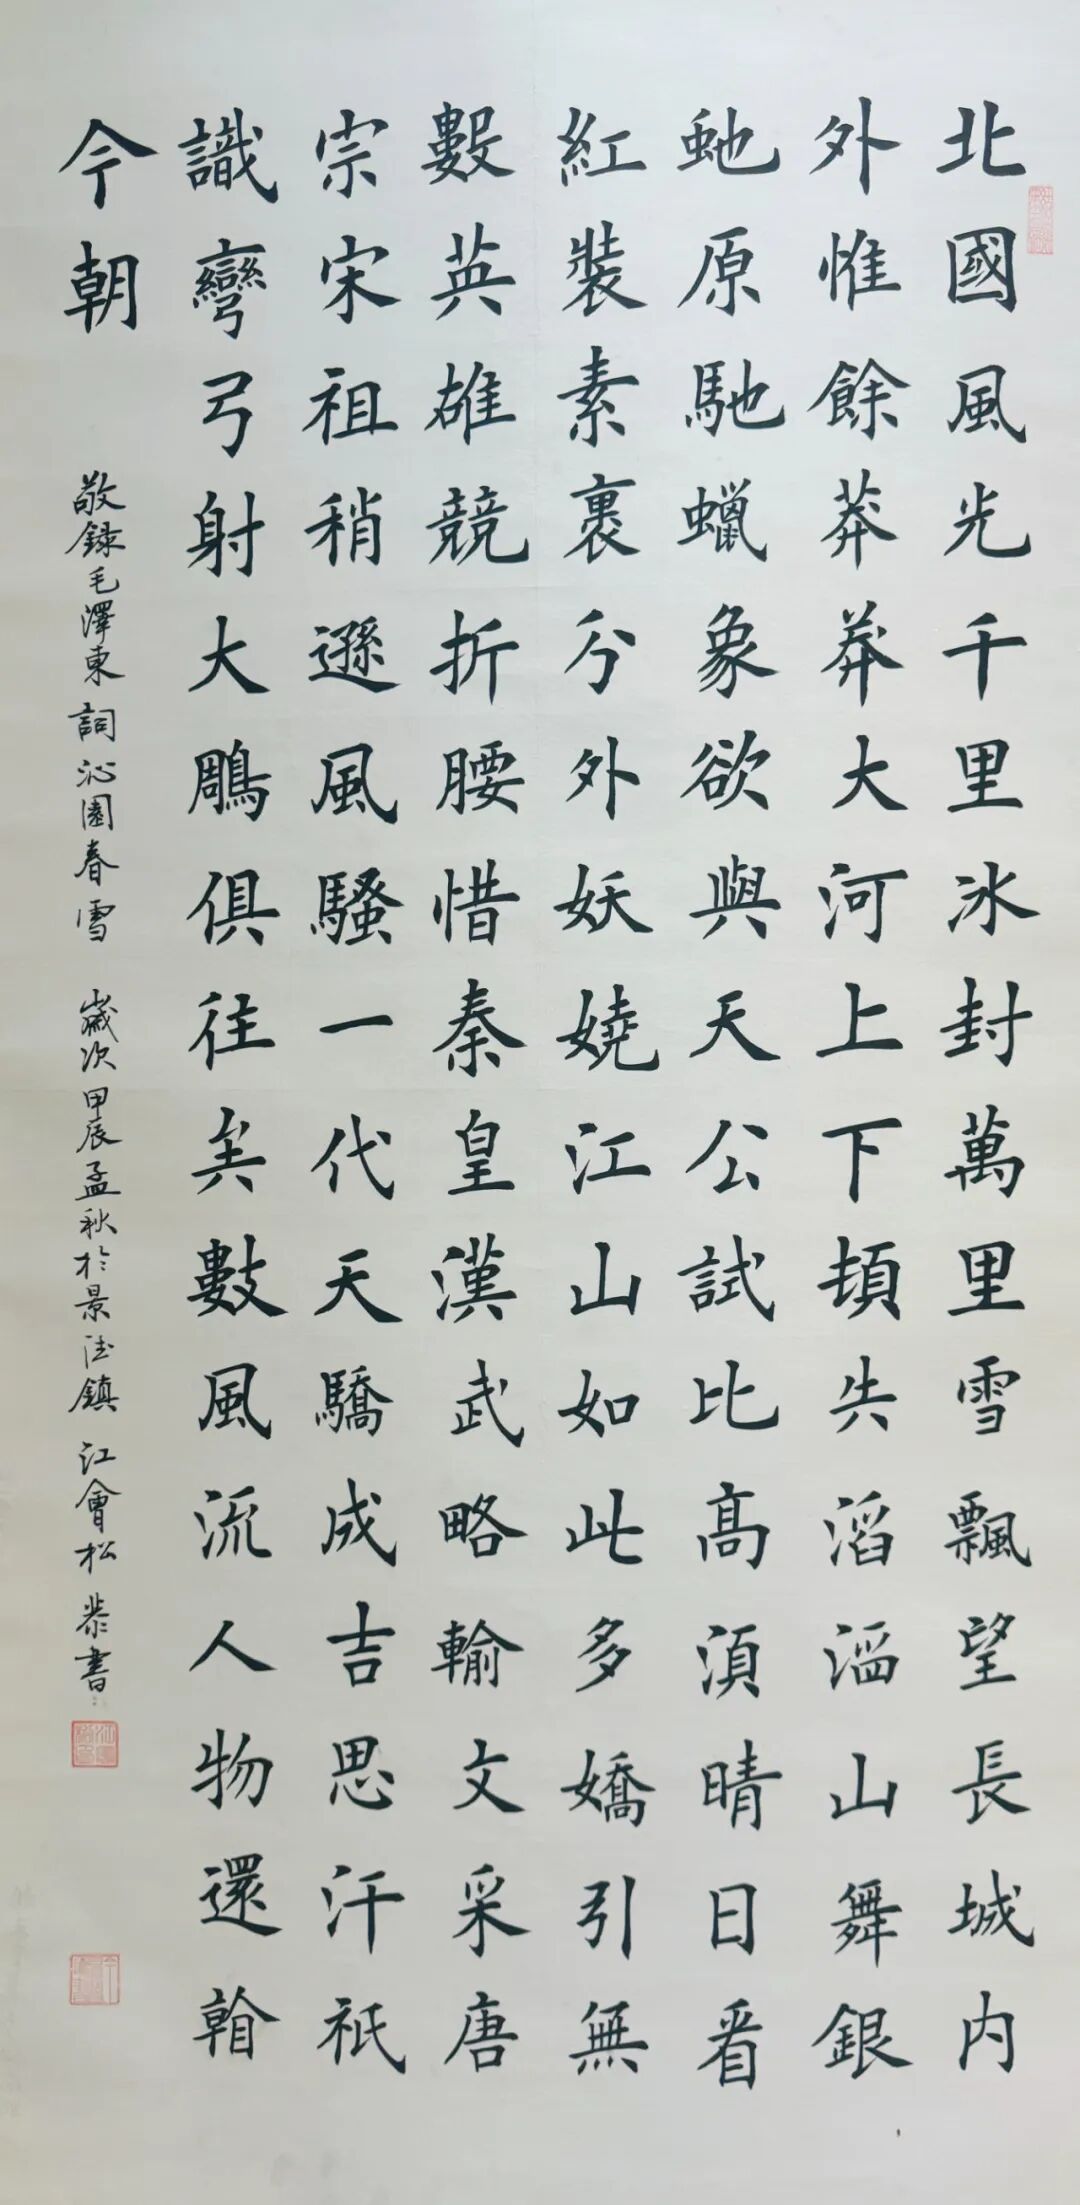 北國風光千里冰封萬里雪飄望長城内
外惟餘莽莽大河上下頓失滔滔山舞銀
虵原馳蠟象欲與天公試比高須晴日看
紅裝素裹兮外妖嬈江山如此多嬌引無
數英雄競折腰惜秦皇漢武略輸文采唐
宗宋祖稍遜風騷一代天驕成吉思汗祇
識彎弓射大鵰俱往矣數風流人物還看
今朝
敬録毛澤東詞沁園春雪 歲次甲辰孟秋於景德鎮 江會松恭書